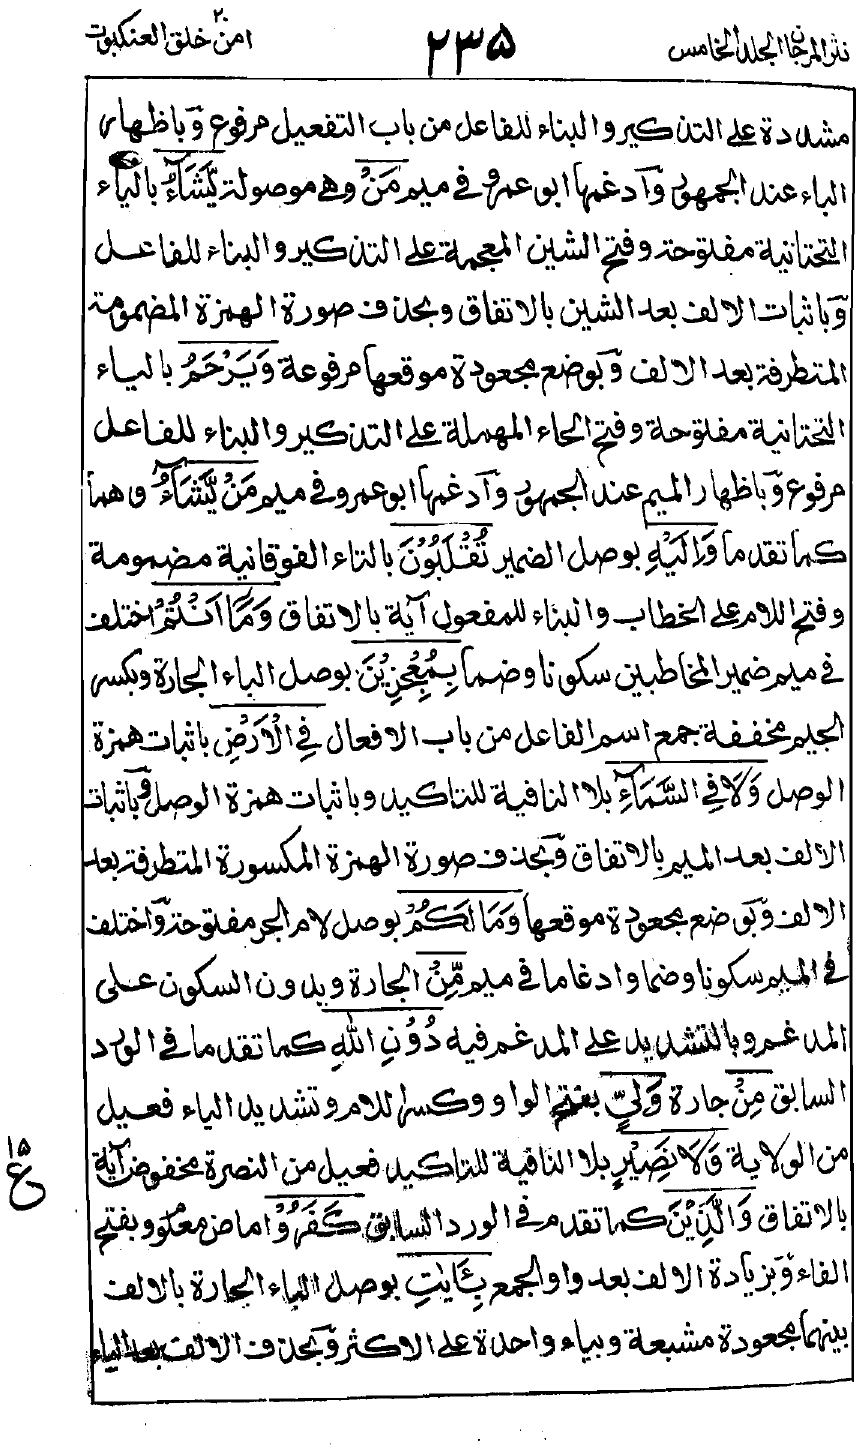 نثر المرجان الجلد الخامس
٢٣٥
امن خلق ٢٠ العنكبوت
مشددة على التذكير والبناء للفاعل من باب التفعيل مرفوع وَباظهار
الباء عند الجمهور وَآدغمها ابو عمرو في ميم مَنْ وهي موصولة يَّشَآءُ بالياء
التحتانية مفتوحة وفتح الشين المعجمة على التذكير والبناء للفاعل
وَباثبات الالف بعد الشين بالاتفاق وبحذف صورة الهمزة المضمومة
المتطرفة بعد الالف وَبوضع مجعودة موقعها مرفوعة وَيَرْحَمُ بالياء
التحتانية مفتوحة وفتح الحاء المهملة على التذكير والبناء للفاعل
مرفوع وَباظهار الميم عند الجمهور وَآدغمها ابو عمرو في ميم مَنْ يَّشَآءُ وهما
كما تقدما وَاِلَيْهِ بوصل الضمير تُقْلَبُوْنَ بالتاء الفوقانية مضمومة
وفتح اللام على الخطاب والبناء للمفعول آية بالاتفاق وَمَآ اَنْتُمْ اختلف
في ميم ضمير المخاطبين سكونا وضما بِمُعْجِزِيْنَ بوصل الباء الجارة وبكسر
الجيم مخففة جمع اسم الفاعل من باب الافعال فِي الْاَرْضِ باثبات همزة
الوصل وَلَا فِي السَّمَآءِ بلا النافية للتاكيد وباثبات همزة الوصل وَباثبات
الالف بعد الميم بالاتفاق وَبحذف صورة الهمزة المكسورة المتطرفة بعد
الالف وَبوضع مجعودة موقعها وَمَا لَكُمْ بوصل لام الجر مفتوحة وَاختلف
في الميم سكونا وضما وادغاما في ميم مِّنْ الجارة وبدون السكون على
المدغم وبالتشديد على المدغم فيه دُوْنِ اللّٰهِ كما تقدما في الورد
السابق مِنْ جارة وَلِيٍّ بفتح الواو وكسر اللام وتشديد الياء فعيل
من الولاية وَلَا نَصِيْرٍ بلا النافية للتاكيد فعيل من النصرة مخفوض آية
بالاتفاق وَالَّذِيْنَ كما تقدم في الورد السابق كَفَرُوْا ماض معلوم وبفتح
الفاء وَبزيادة الالف بعد واو الجمع بِئَايٰتِ بوصل الباء الجارة بالالف
بينهما مجعودة مشبعة وبياء واحدة على الاكثر وَبحذف الالف بعد الياء
١٥
ع